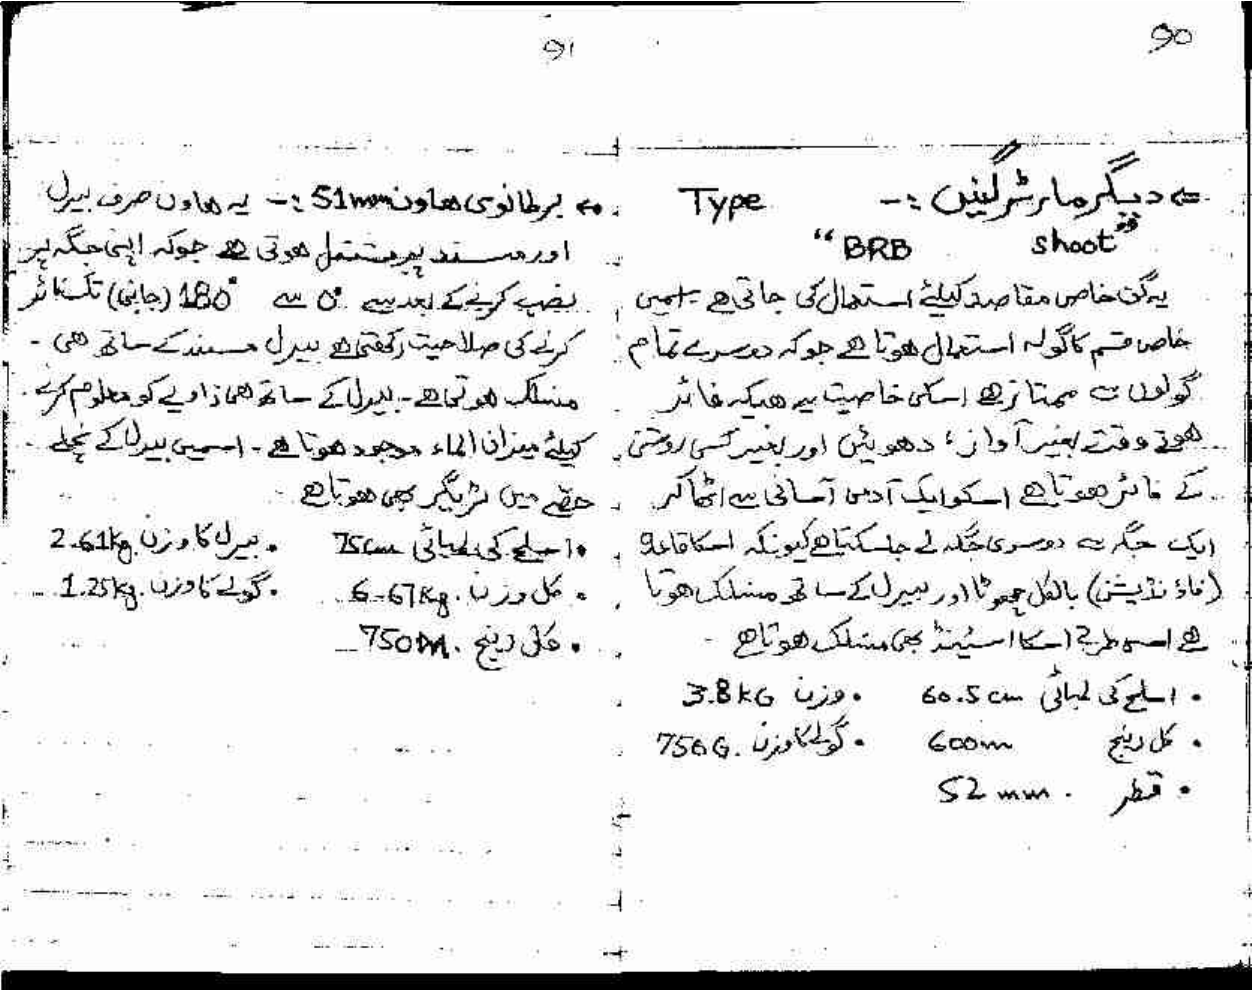 90
⇐ دیگر مارٹر گنیں :- Type
"BRB shoot"
یہ گن خاص مقاصد کیلئے استعمال کی جاتی ہے - اسمیں
خاص قسم کا گولہ استعمال ہوتا ہے جوکہ دوسرے تمام
گولوں سے ممتاز ہے اسکی خاصیت یہ ھیکہ فائر
ھوتے وقت بغیر آواز، دھویئں اور بغیر کسی روشنی
کے فائر ھوتا ھے اسکو ایک آدمی آسانی سے اٹھا کر
ایک جگہ سے دوسری جگہ لے جا سکتا ھے کیونکہ اسکا قاعدہ
(فاؤنڈیشن) بالکل چھوٹا اور بیرل کے ساتھ منسلک ھوتا
ھے اسی طرح اسکا اسٹینڈ بھی منسلک ھوتا ھے -
• اسلحے کی لمبائی 60.5 cm • وزن 3.8 kG
• کل رینج 600m • گولے کا وزن 750G.
• قطر 52 mm.
91
⇐ برطانوی ھاون 51mm :- یہ ھاون صرف بیرل
اور مسند پر مشتمل ھوتی ھے جوکہ اپنی جگہ پر
نصب کرنے کے بعد سے 0° سے 180° (جانبی) تک فائر
کرنے کی صلاحیت رکھتی ھے بیرل مسند کے ساتھ ھی -
منسلک ھوتی ھے - بیرل کے ساتھ ھی زاویے کو معلوم کرنے
کیلئے میزان الماء موجود ھوتا ھے - اسمیں بیرل کے نچلے
حصّے میں ٹریگر بھی ھوتا ھے
• اسلحے کی لمبائی 75cm • بیرل کا وزن 2.61kg
• کل وزن 6.67Kg. • گولے کا وزن 1.25kg.
• کل رینج 750m.